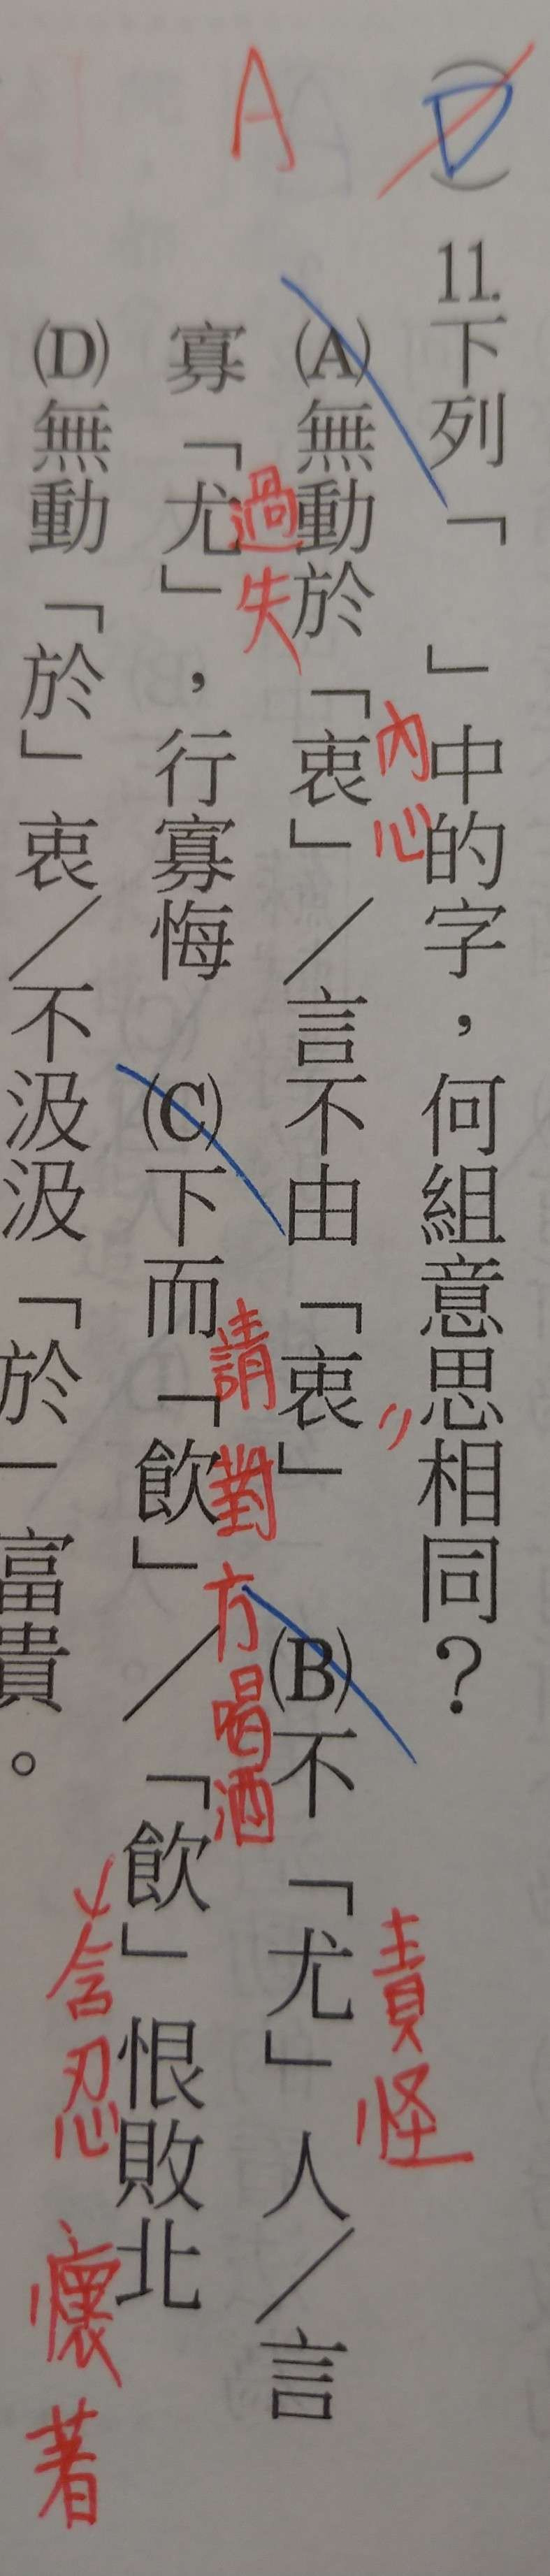 (D) 11.下列「　」中的字，何組意思相同？
A
(A)無動於「衷」／言不由「衷」 (B)不「尤」人／言
內心
〃
責怪
寡「尤」，行寡悔 (C)下而「飲」／「飲」恨敗北
過失
請對方喝酒
含忍
懷著
(D)無動「於」衷／不汲汲「於」富貴。